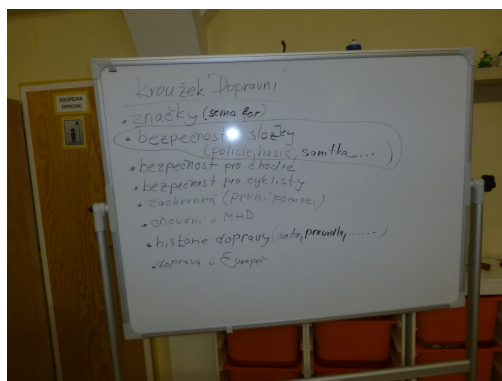 KOUPELNA
(SPRCHA)
kroužek Dopravní
• značky (semafor)
• bezpečnostní složky
(policie, hasič, sanitka ... )
• bezpečnost pro chodce
• bezpečnost pro cyklisty
• záchranná (první pomoc)
• chování v MHD
• historie dopravy (auta, pravidla, ......)
• doprava v Evropě